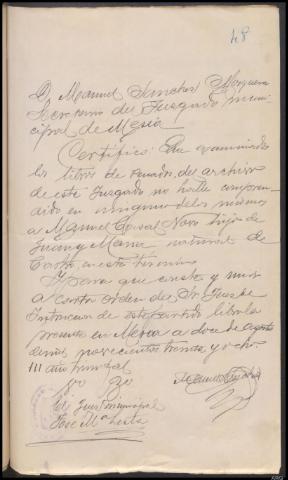 48
D. Manuel Sanchez Noguera
Secretario del Juzgado muni-
cipal de Mesia
Certifico: Que examinados
los libros de penados del archivo
de este Juzgado no halle compren-
dido en ninguno de los mismos
a Manuel Novo hijo de
Juan y Maria natural de
en este término
Y para que conste y
a orden del Sr. Juez de
Instruccion de este partido libro la
presente en Mesia a doce de agosto
de mil novecientos treinta y ocho
III año triunfal
Vº Bº
El Juez municipal
Jose Mª
Manuel Sanchez